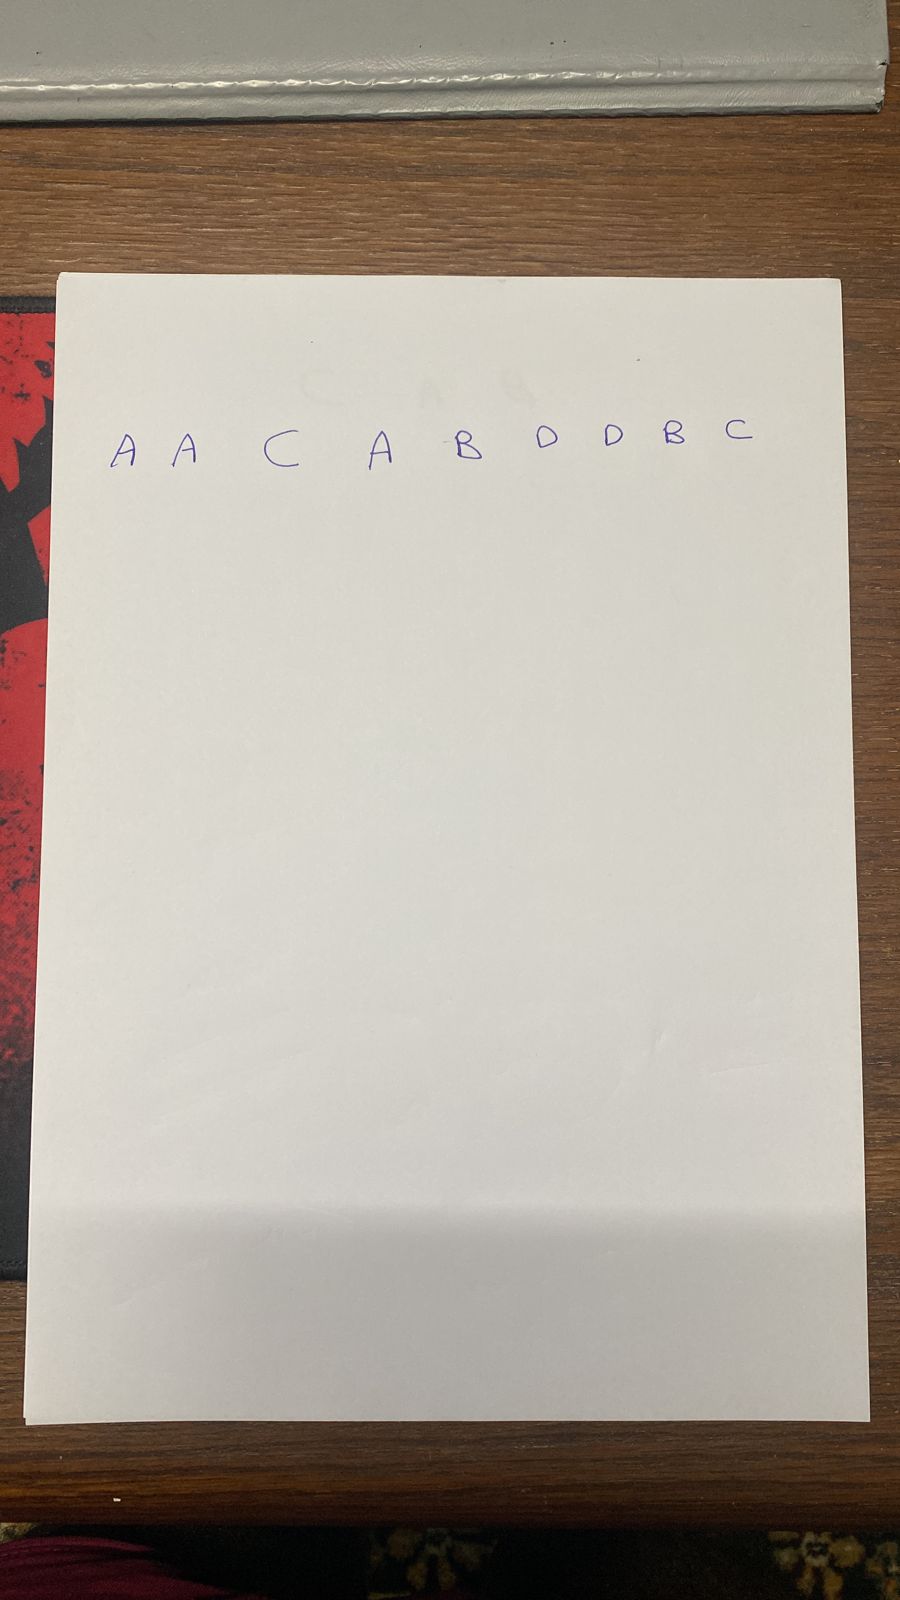 A A C A B D D B C